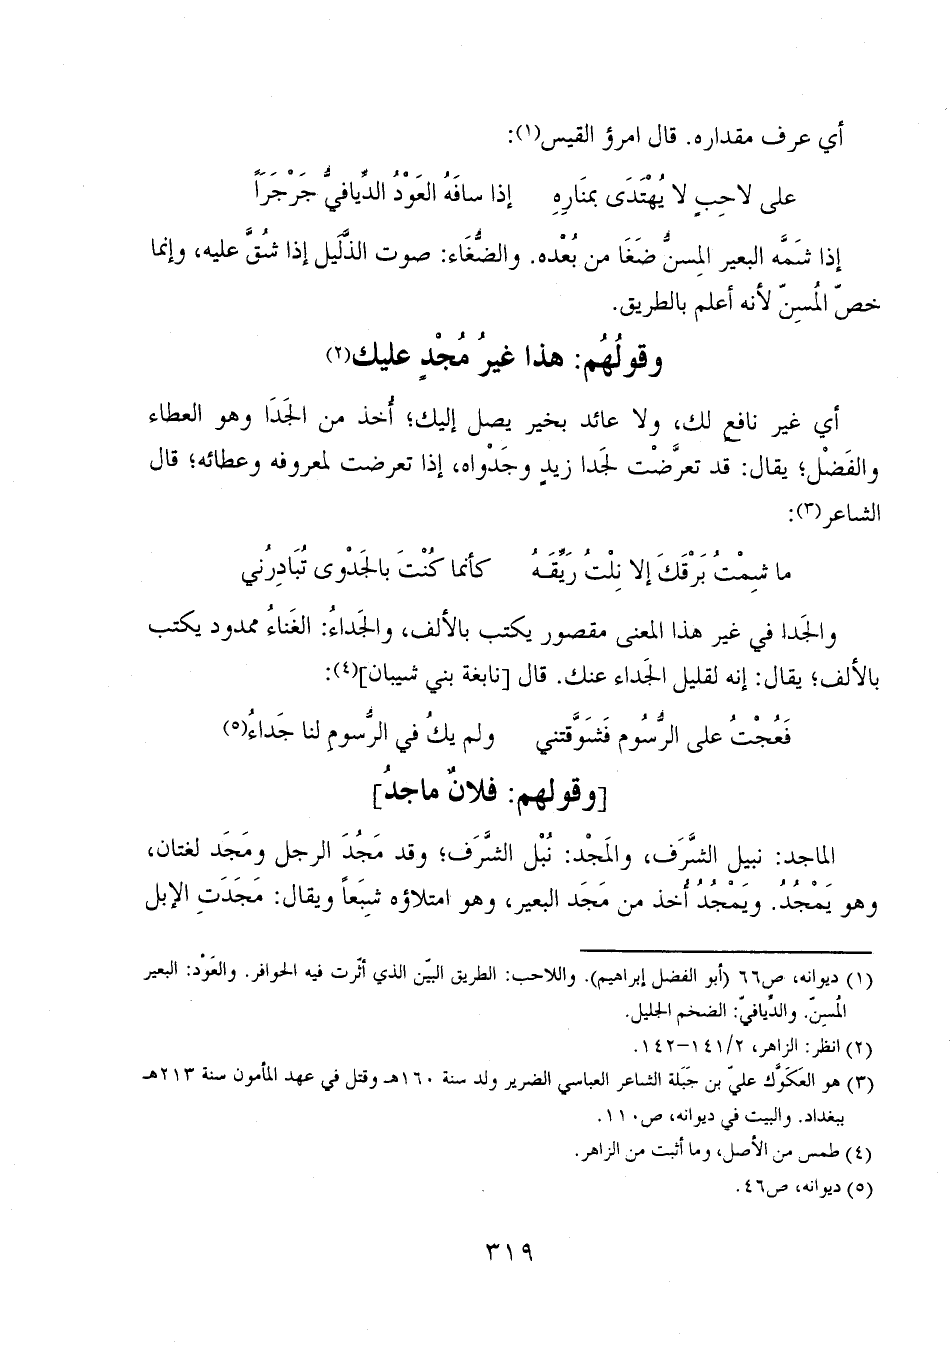 أي عرف مقداره. قال امرؤ القيس(١):
على لاحِبٍ لا يُهْتَدَى بمَنَارِهِ إذا سافَهُ العَوْدُ الدِّيافيُّ جَرْجَرَاً
إذا شَمَّه البعير المِسنُّ ضَغَا من بُعْده. والضُّغَاء: صوت الذَّليل إذا شُقَّ عليه، وإنما
خصّ المُسِنّ لأنه أعلم بالطريق.
وقولُهُم: هذا غيرُ مُجْدٍ عليك(٢)
أي غير نافع لك، ولا عائد بخير يصل إليك؛ أُخذ من الجَدَا وهو العطاء
والفَضْل؛ يقال: قد تعرَّضْت لجَدا زيدٍ وجَدْواه، إذا تعرضت لمعروفه وعطائه؛ قال
الشاعر(٣):
ما شِمْتُ بَرْقَكَ إلا نِلْتُ رَيِّقَهُ كأنما كُنْتَ بالجَدْوى تُبَادِرُني
والجَدا في غير هذا المعنى مقصور يكتب بالألف، والجَداءُ: الغَناءُ ممدود يكتب
بالألف؛ يقال: إنه لقليل الجَداء عنك. قال [نابغة بني شيبان](٤):
فَعُجْتُ على الرُّسُومِ فَشَوَّقتني ولم يكُ في الرُّسومِ لنا جَداءُ(٥)
[وقولهم: فلانٌ ماجدُ]
الماجد: نبيل الشَّرَف، والمَجْد: نُبْل الشَّرَف؛ وقد مَجُدَ الرجل ومَجَد لغتان،
وهو يَمْجُدُ. ويَمْجُدُ أُخذ من مَجَد البعير، وهو امتلاؤه شِبَعاً ويقال: مَجَدَتِ الإبل
(١) ديوانه، ص٦٦ (أبو الفضل إبراهيم). واللاحب: الطريق البيّن الذي أثّرت فيه الحوافر. والعَوْد: البعير
المُسِنّ. والدِّيافيّ: الضخم الجليل.
(٢) انظر: الزاهر، ١٤١/٢-١٤٢.
(٣) هو العَكَوَّك عليّ بن جَبَلة الشاعر العباسي الضرير ولد سنة ١٦٠هـ وقتل في عهد المأمون سنة ٢١٣هـ
ببغداد. والبيت في ديوانه، ص١١٠.
(٤) طمس من الأصل، وما أثبت من الزاهر.
(٥) ديوانه، ص٤٦.
٣١٩